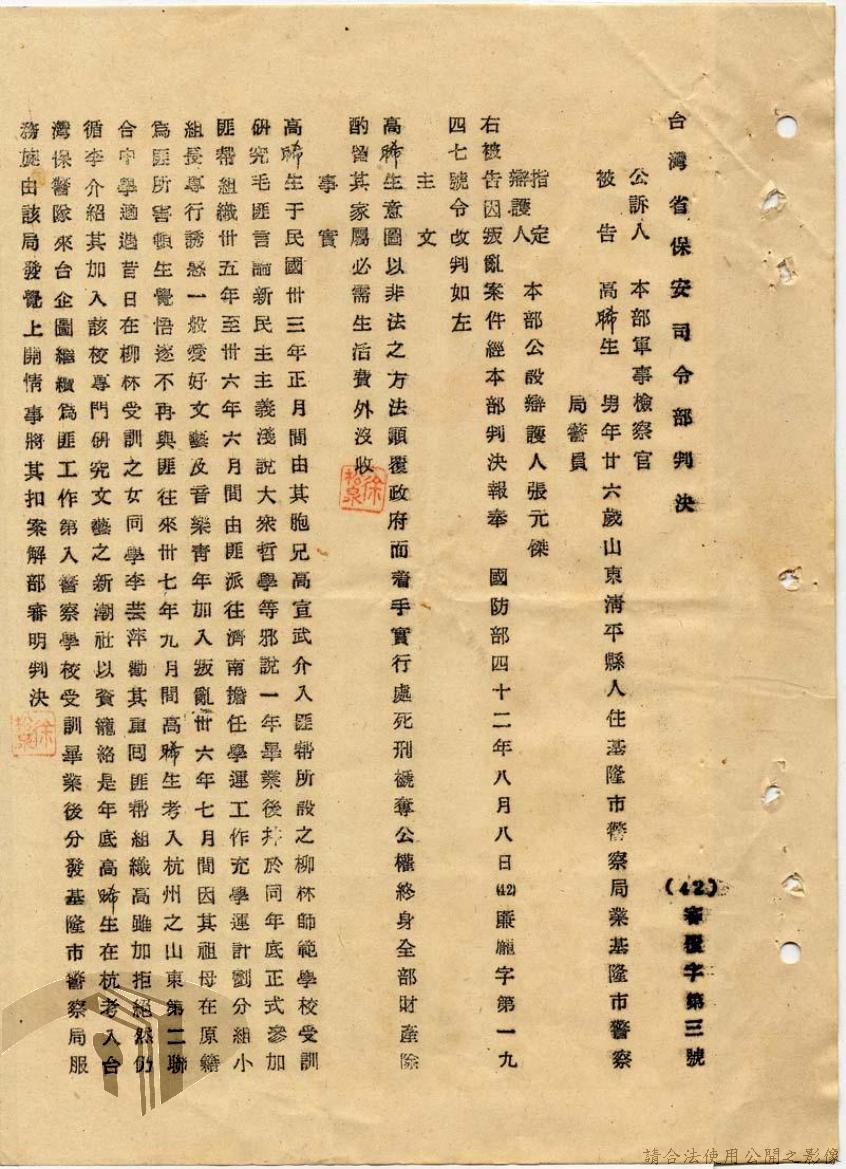 台灣省保安司令部判決
(42)審覆字第三號
公訴人　本部軍事檢察官
被告　高晞生　男年廿六歲山東淸平縣人住基隆市警察局業基隆市警察
局警員
指定
辯護人　本部公設辯護人張元傑
右被告因叛亂案件經本部判決報奉　國防部四十二年八月八日(42)廉龐字第一九
四七號令改判如左
主文
高晞生意圖以非法之方法顚覆政府而着手實行處死刑褫奪公權終身全部財產除
酌留其家屬必需生活費外沒收
徐松泉
事實
高晞生于民國卅三年正月間由其胞兄高宣武介入匪幇所設之柳林師範學校受訓
硏究毛匪言論新民主主義淺說大衆哲學等邪說一年畢業後並於同年底正式滲加
匪幇組織卅五年至卅六年六月間由匪派往濟南擔任學運工作充學運計劃分組小
組長專行誘惑一般愛好文藝及音樂靑年加入叛亂卅六年七月間因其祖母在原籍
爲匪所害頓生覺悟遂不再與匪往來卅七年九月間高晞生考入杭州之山東第二聯
合中學適遇昔日在柳林受訓之女同學李芸萍勸其重囘匪幇組織高雖加拒絕然仍
循李介紹其加入該校專門硏究文藝之新潮社以資籠絡是年底高晞生在杭考入台
灣保警隊來台企圖繼續爲匪工作第入警察學校受訓畢業後分發基隆市警察局服
務旋由該局發覺上開情事將其扣案解部審明判決
徐松泉
請合法使用公開之影像